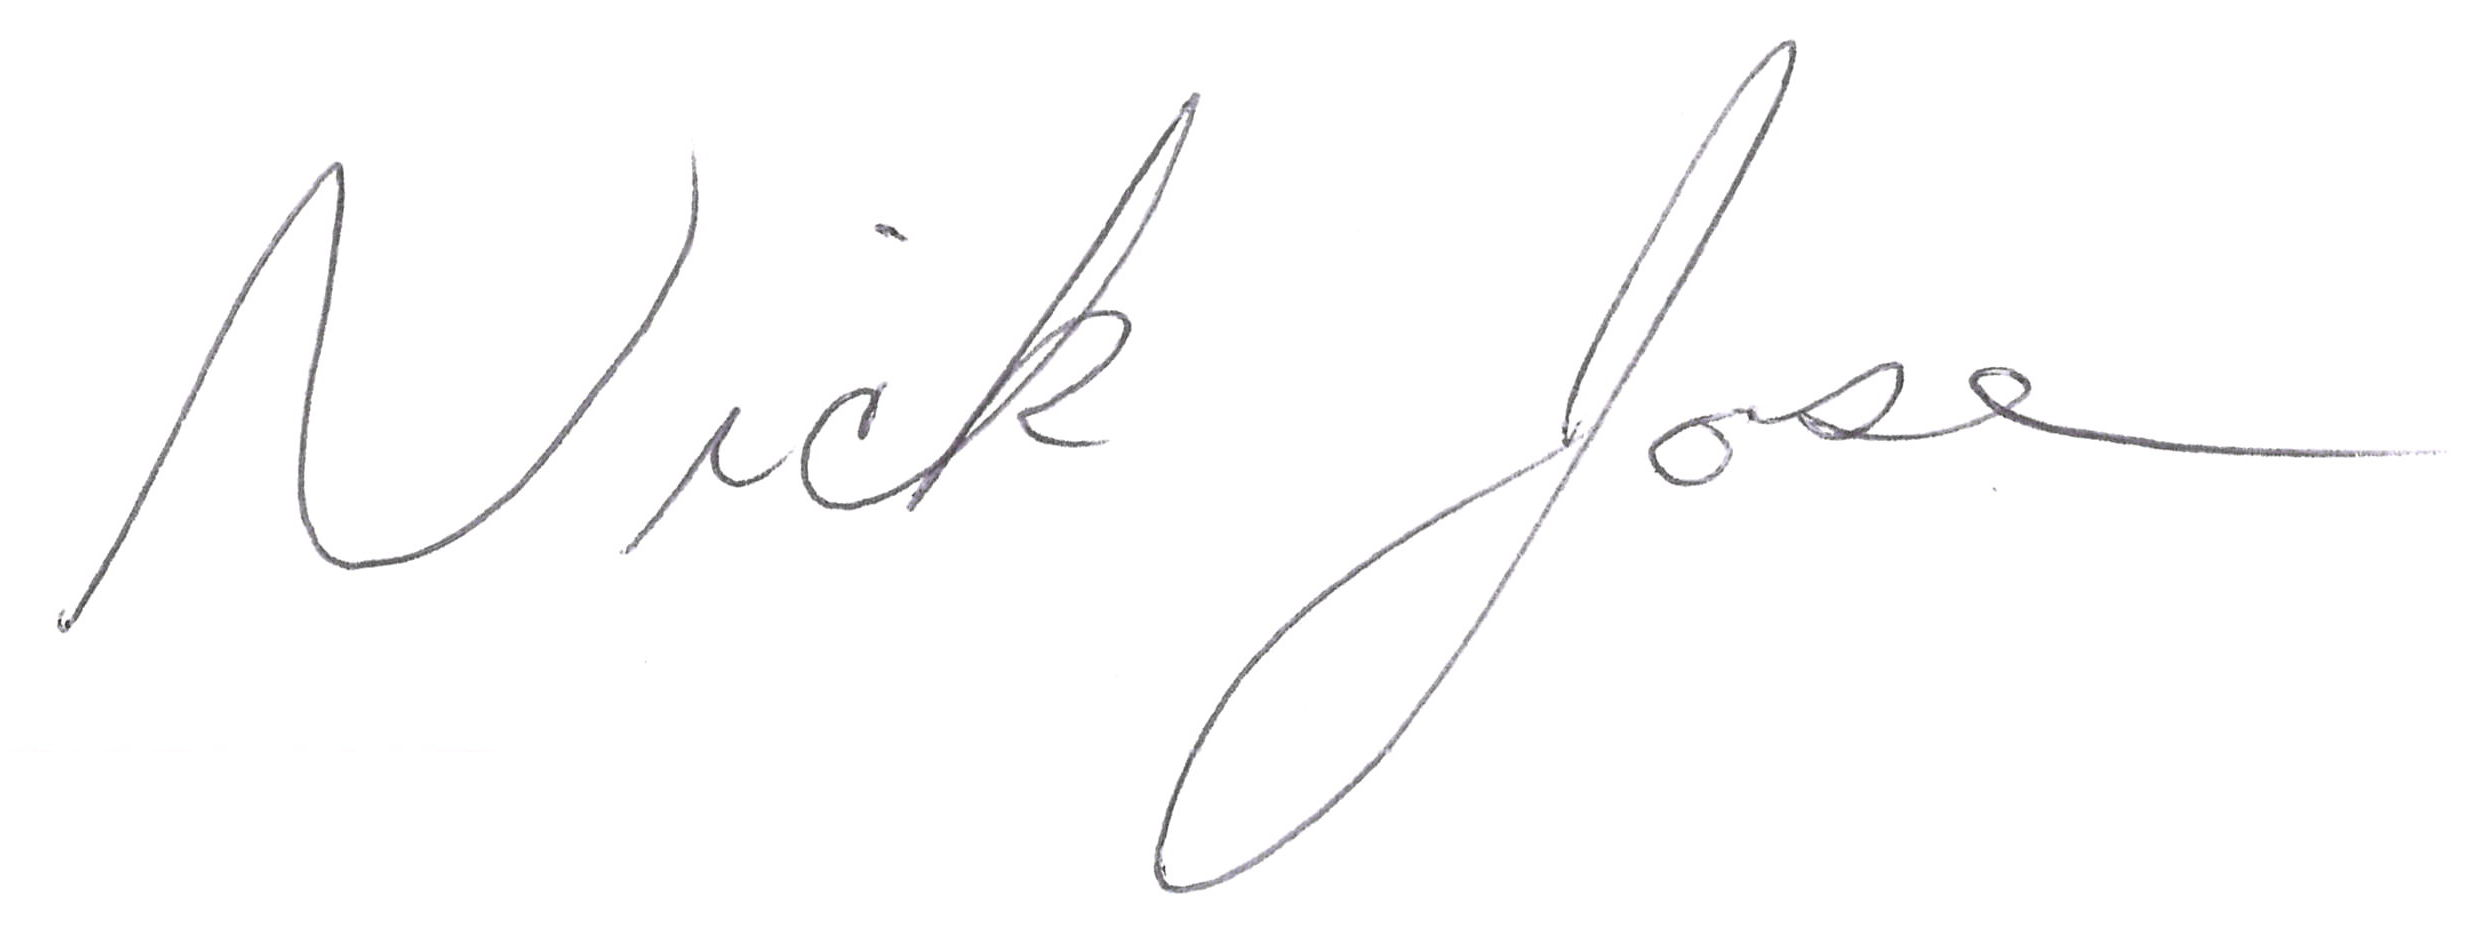 Nick Jose